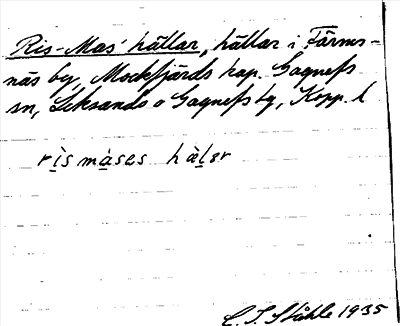 Ris-Mas' hällar, hällar i Färms-
näs by, Mockfjärds kap. Gagnefs
sn, Leksands o Gagnefs tg, Kopp. l
rìsmàses hæ̀lər
C. I. Ståhle 1935